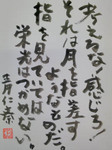 考えるな、感じろ
それは月を指差す
ようなものだ。
指を見ていては
栄光はつかめない。